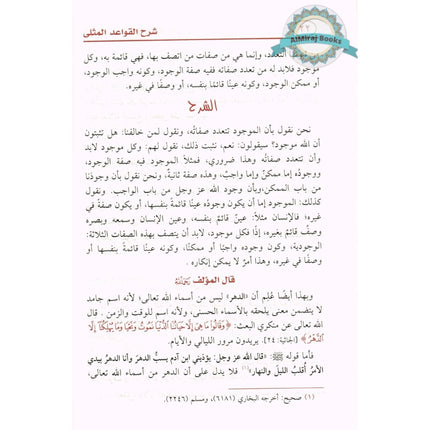 شرح القواعد المثلى
AlMiraj Books
التعدد، وإنما هي من صفات من اتصف بها، فهي قائمة به، وكل
موجود فلابد له من تعدد صفاته ففيه صفة الوجود، وكونه واجب الوجود،
أو ممكن الوجود، وكونه عينًا قائمًا بنفسه، أو وصفًا في غيره.
الشرح
نحن نقول بأن الموجود تتعدد صفاته، ونقول لمن خالفنا: هل تثبتون
أن الله موجود؟ سيقولون: نعم، نثبت ذلك، نقول لهم: وكل موجود لابد
وأن تتعدد صفاته وهذا ضروري، فمثلاً الموجود فيه صفة الوجود،
ووجوده إما ممكن وإما واجب، وهذه صفة ثانية، ونحن نقول بأن وجودنا
من باب الممكن، وبأن وجود الله عز وجل من باب الواجب.
كذلك: الموجود إما أن يكون وجوده عينًا قائمًا بنفسه، أو يكون صفة في
غيره؛ فالإنسان مثلاً: عين قائم بنفسه، وعين الإنسان وسمعه وبصره
وصف قائم بغيره، إذًا فكل موجود، لابد أن يتصف بهذه الصفات الثلاثة:
الوجودية، وكون وجوده واجبًا أو ممكنًا، وكونه عينًا قائمة بنفسها أو
وصفًا في غيره، وهذا أمر لا يمكن إنكاره.
قال المؤلف رَحِمَهُ اللَّهُ
وبهذا أيضًا عُلِم أن «الدهر» ليس من أسماء الله تعالى؛ لأنه اسم جامد
لا يتضمن معنى يلحقه بالأسماء الحسنى، ولأنه اسم للوقت والزمن. قال
الله تعالى عن منكري البعث: ﴿وَقَالُوا مَا هِيَ إِلَّا حَيَاتُنَا الدُّنْيَا نَمُوتُ وَنَحْيَا وَمَا يُهْلِكُنَا إِلَّا
الدَّهْرُ﴾ [الجاثية: ٢٤]. يريدون مرور الليالي والأيام.
فأما قوله ﷺ: «قال الله عز وجل: يؤذيني ابن آدم يسبُّ الدهر وأنا الدهر بيدي
الأمرُ أُقلبُ الليلَ والنهار»(١) فلا يدل على أن الدهر من أسماء الله تعالى،
(١) صحيح: أخرجه البخاري (٦١٨١)، ومسلم (٢٢٤٦).